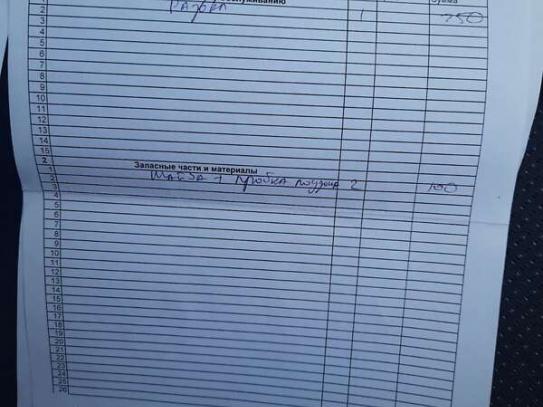 обслуживанию
Сумма
2
3 1 750
4
5
6
7
8
9
10
11
12
13
14
15
2 Запасные части и материалы
1
2 шайба + пробка 2 100
3
4
5
6
7
8
9
10
11
12
13
14
15
16
17
18
19
20
21
22
23
24
25
26